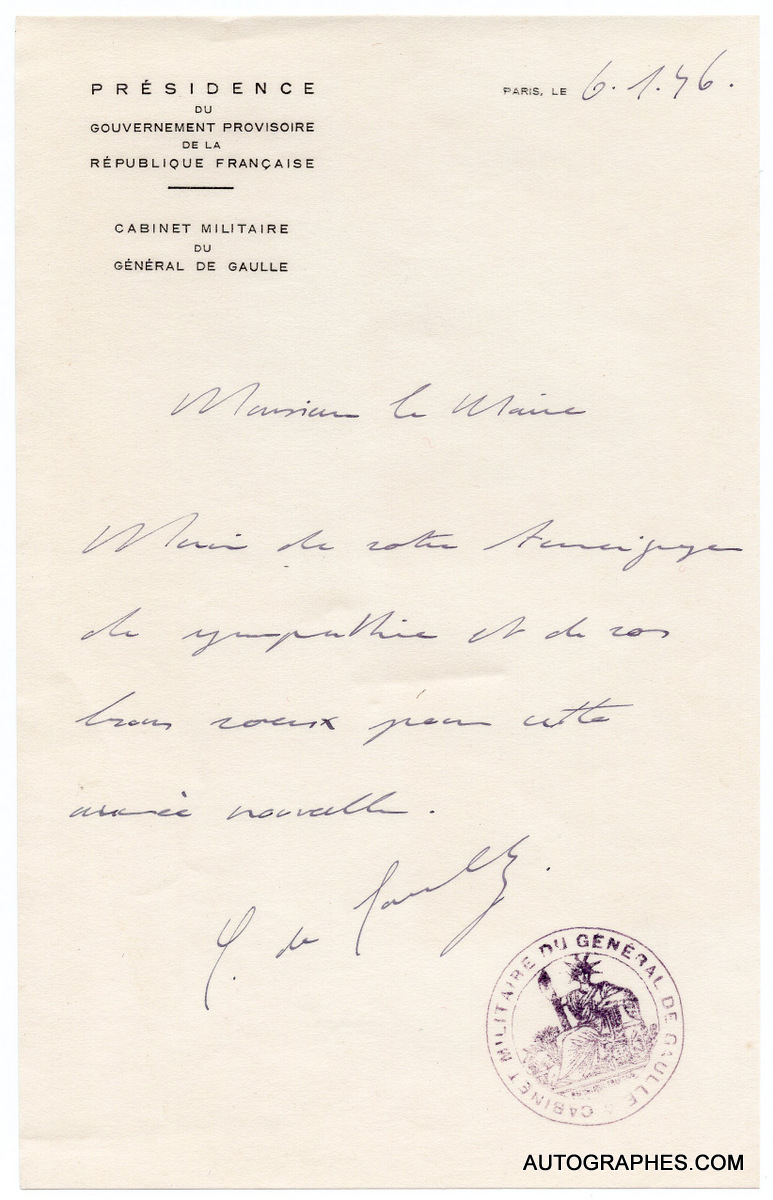 PRÉSIDENCE
DU
GOUVERNEMENT PROVISOIRE
DE LA
RÉPUBLIQUE FRANÇAISE
CABINET MILITAIRE
DU
GÉNÉRAL DE GAULLE
PARIS, LE 6.1.46.
Monsieur le Maire
Merci de votre témoignage
de sympathie et de vos
bons voeux pour cette
année nouvelle.
C. de Gaulle.
CABINET MILITAIRE DU GÉNÉRAL DE GAULLE
AUTOGRAPHES.COM